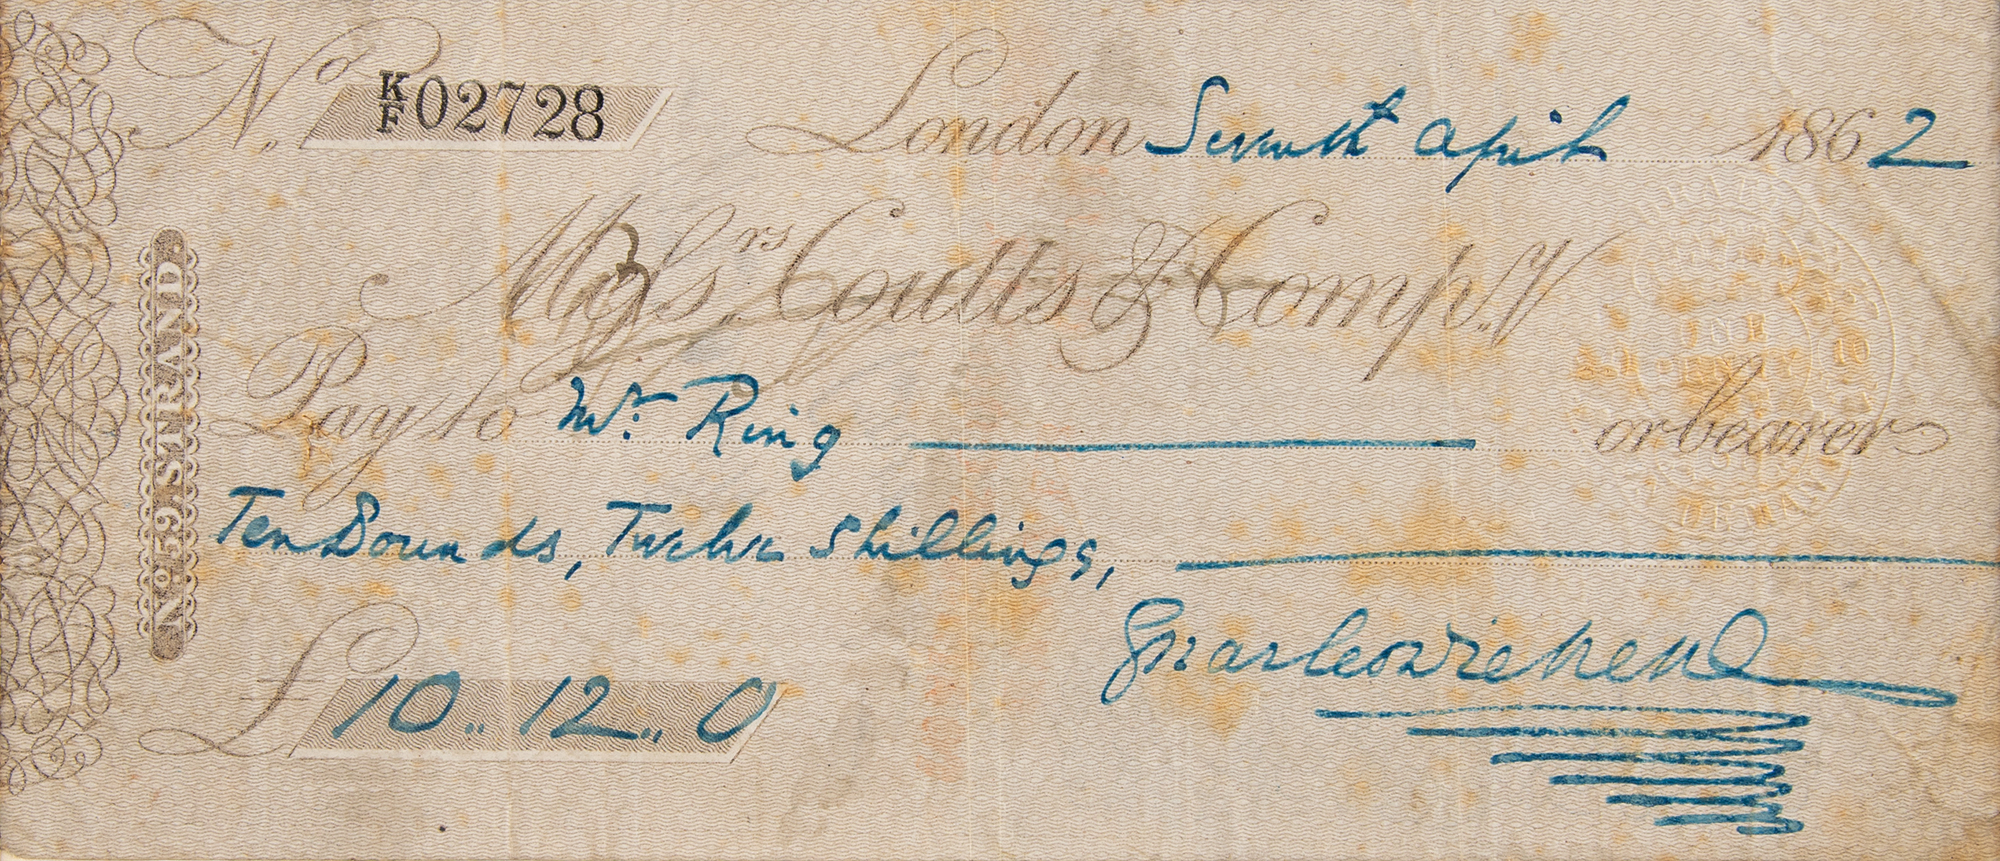 No. K/F 02728 London Seventh April 1862
Messrs. Coutts & Compy.
Pay to Mr. Ring or bearer
Ten Pounds, Twelve Shillings,
£ 10.. 12.. 0
Charles Dickens
No. 59 STRAND
ONE PENNY
DEMAND